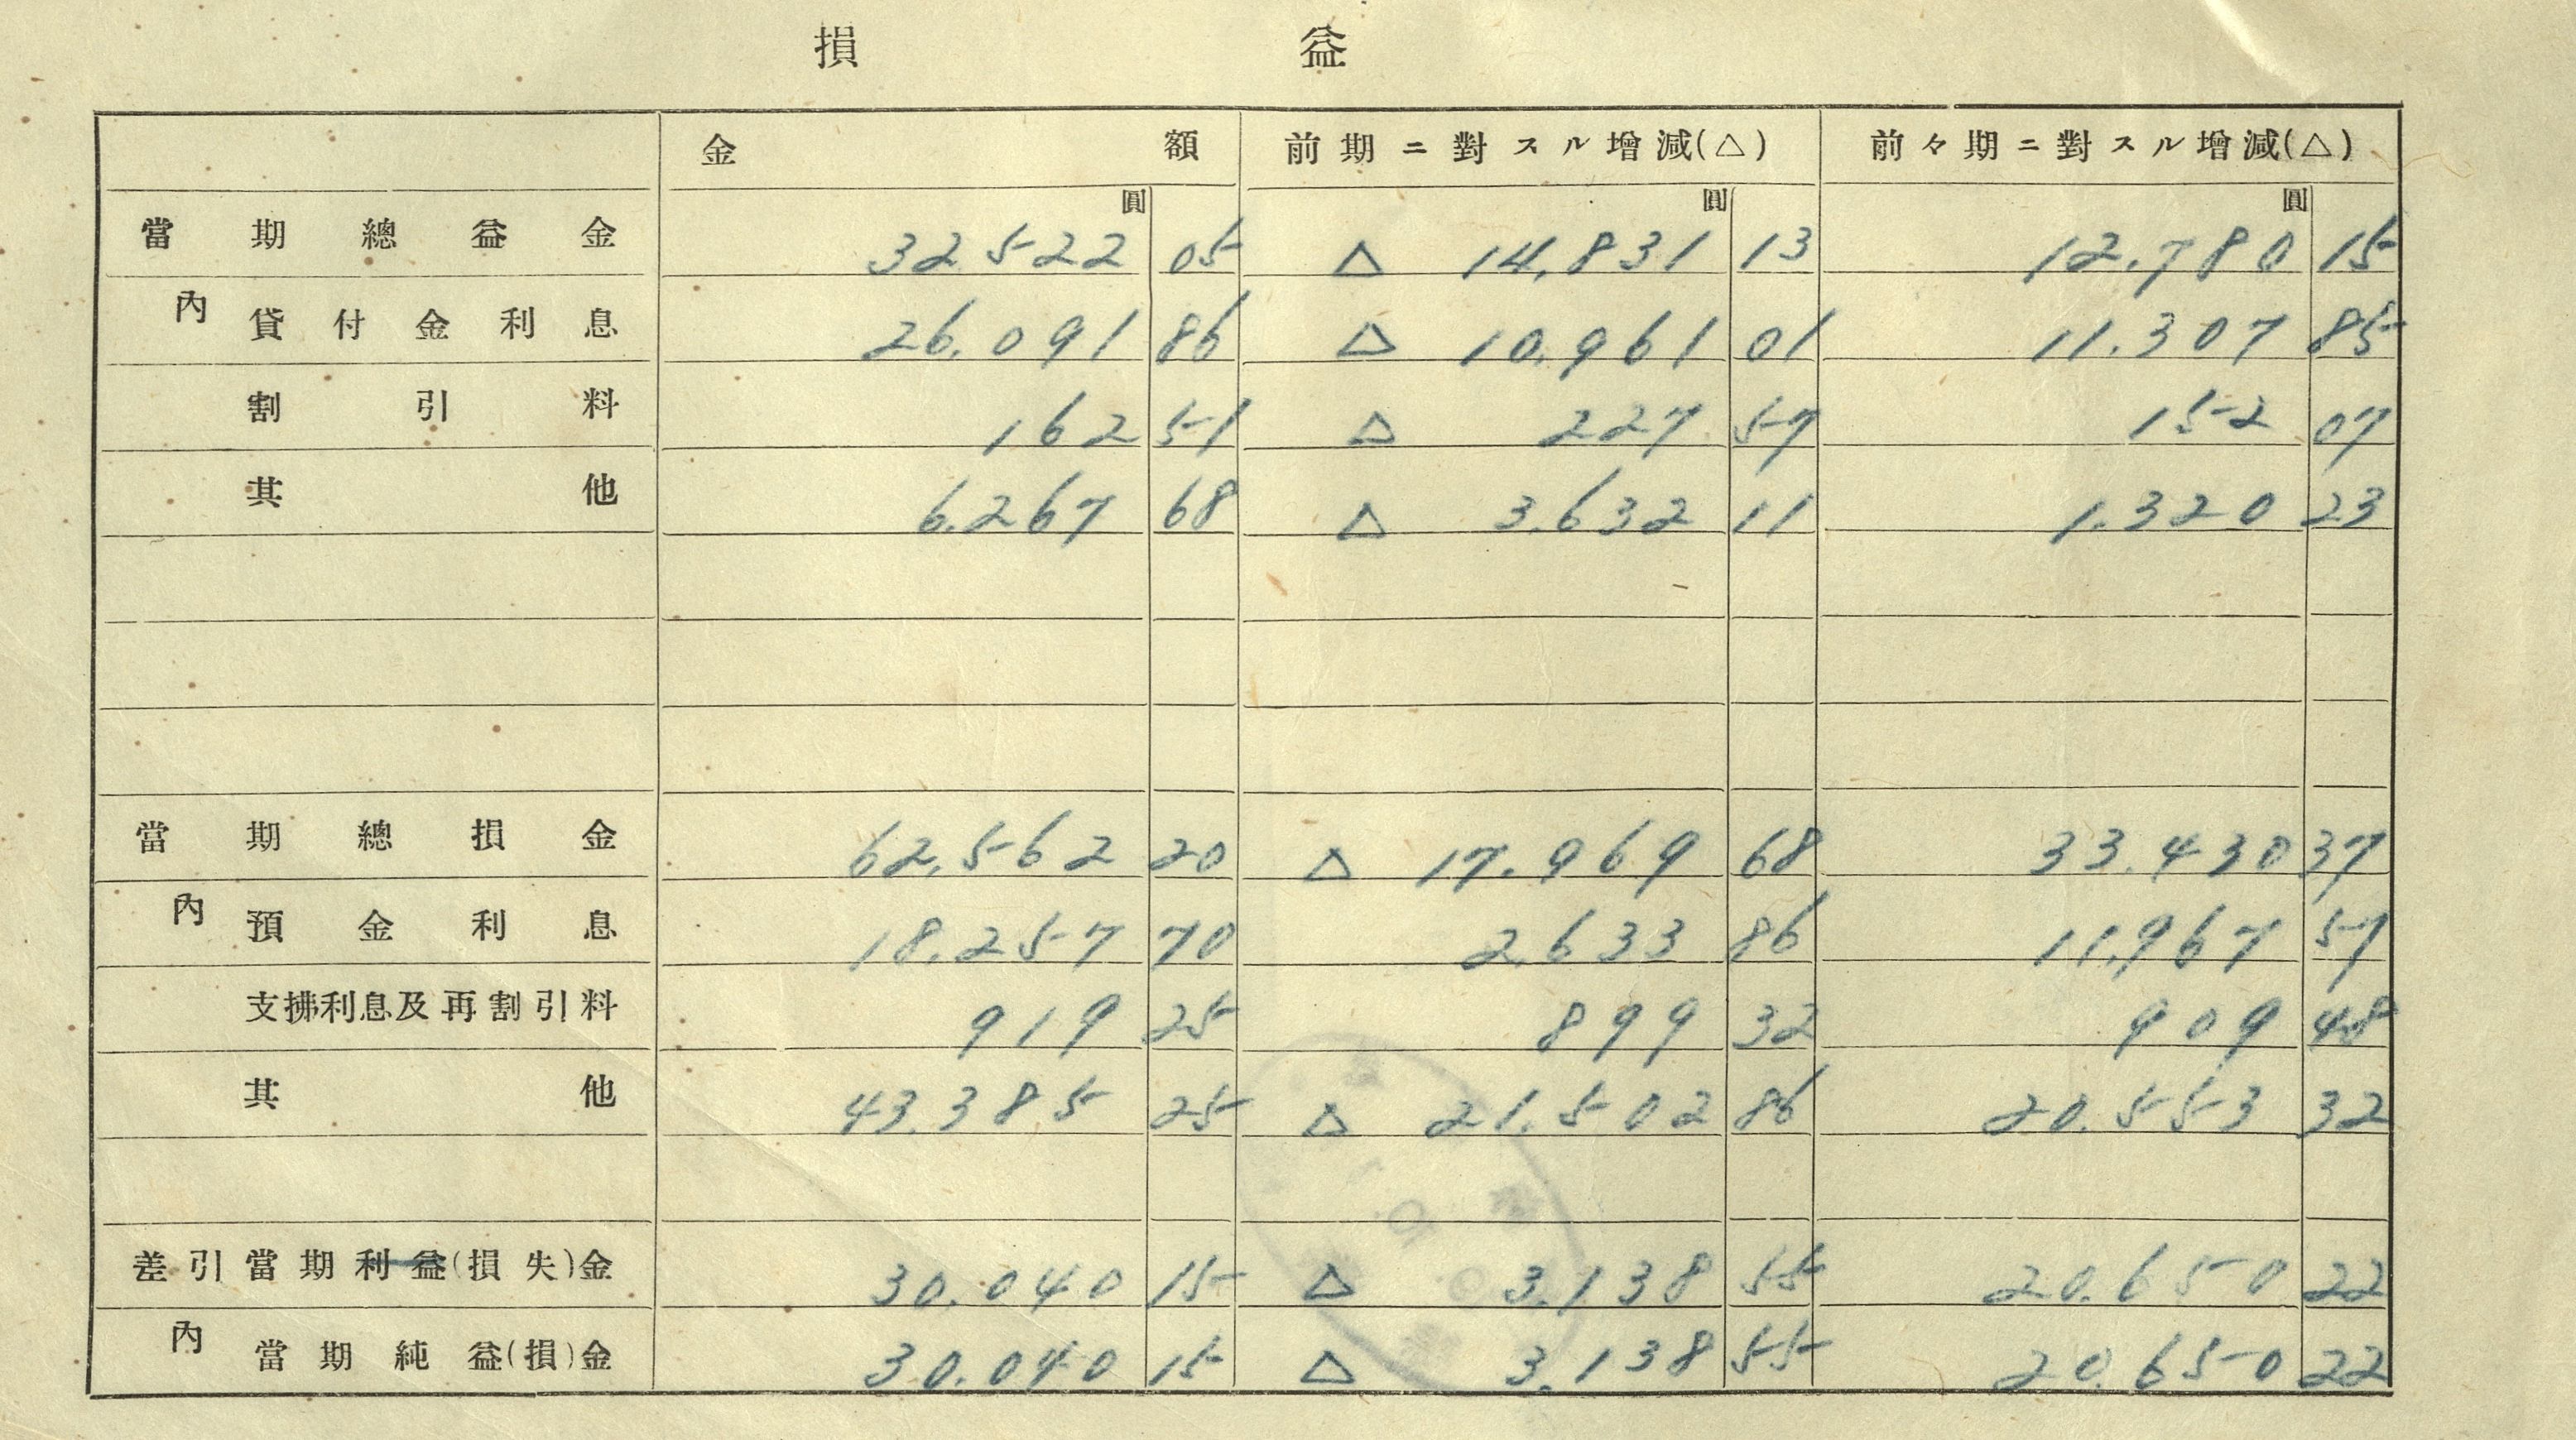 損 益
金 額 前期ニ對スル增減(△) 前々期ニ對スル增減(△)
圓 圓 圓
當期總益金 32522 05 △ 14,831 13 12.780 15
內 貸付金利息 26.091 86 △ 10.961 01 11.307 85
割引料 162 51 △ 227 57 152 07
其他 6.267 68 △ 3.632 11 1.320 23
當期總損金 62,562 20 △ 17.969 68 33.430 37
內 預金利息 18.257 70 2.633 86 11.967 57
支拂利息及再割引料 919 25 899 32 909 48
其他 43.385 25 △ 21.502 86 20.553 32
差引當期利益(損失)金 30.040 15 △ 3.138 55 20.650 22
內 當期純益(損)金 30.040 15 △ 3.138 55 20.650 22